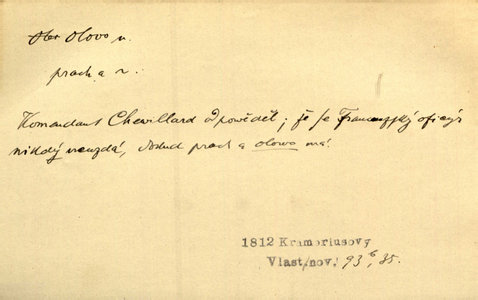 Olovo
prach a
Komandant Chevillard odpověděl; že je Francauzský oficýr
nikdý nevzdá, dokud prach a olowo má.
1812 Krameriusovy
Vlast. nov. 93 6/ 85.